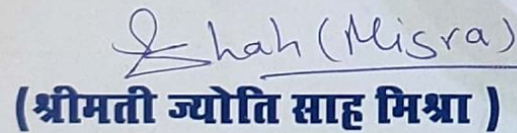 Shah (Misra)
(श्रीमती ज्योति साह मिश्रा )